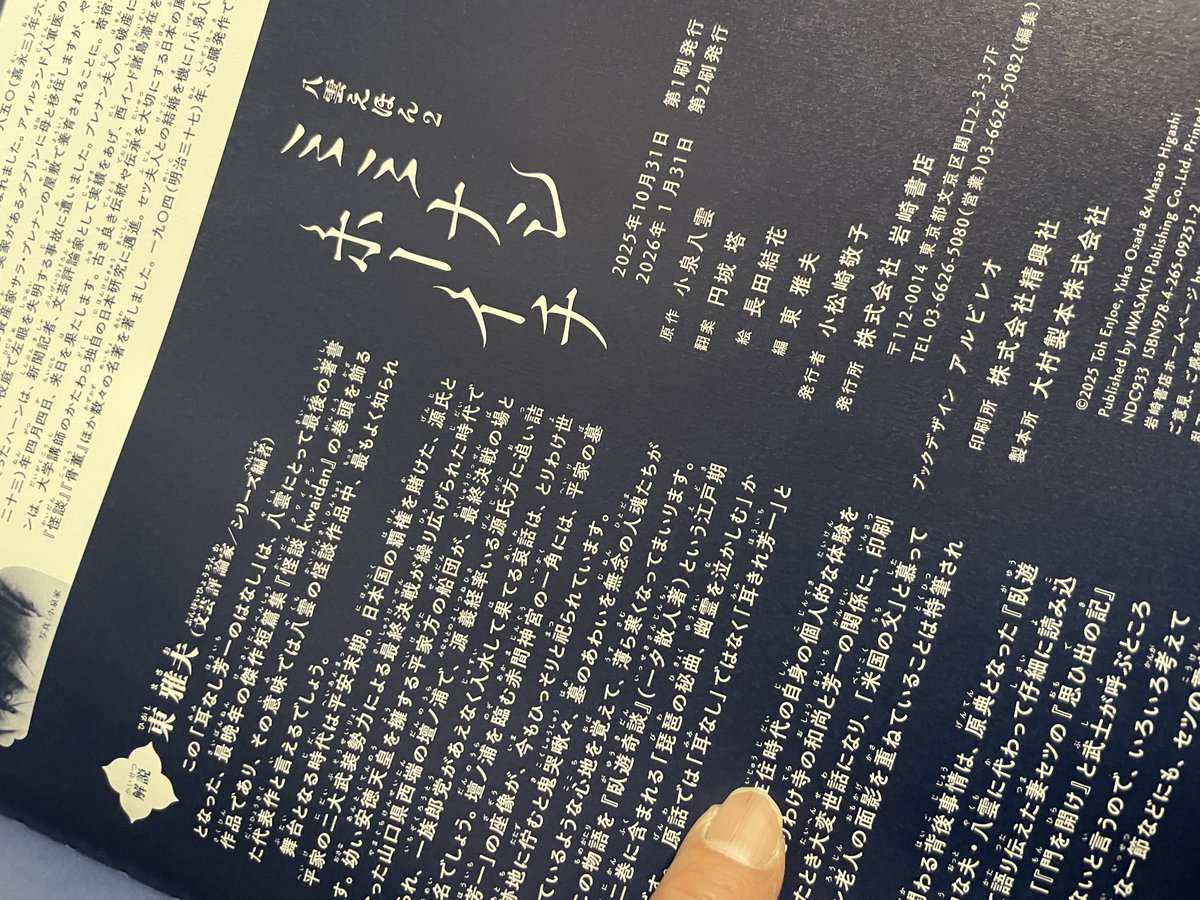 二十三)年
校庭で左眼を失明する事故に遭いました。
ンは、大学講師のかたわら独自の日本研究に邁進。セツ夫人との結婚を機に「小泉八
『怪談』『骨董』ほか数々の名著を著しました。一九〇四(明治三十七)年、心臓発作で
写真:小泉家
解説
かいせつ
東 雅夫(文芸評論家/シリーズ編者)
この「耳なし芳一のはなし」は、八雲にとって最後の著書
となった、最晩年の傑作短篇集『怪談 kwaidan』の巻頭を飾る
作品であり、その意味では八雲の怪談作品中、最もよく知られ
た代表作と言えるでしょう。
舞台となる時代は平安末期。日本国の覇権を賭けた、源氏と
平家の二大武装勢力による最終決戦が繰り広げられた時代で
す。幼い安徳天皇を擁する平家方の船団が、最終決戦の場と
った山口県西端の壇ノ浦で、源義経率いる源氏方に追い詰
られ、一族郎党があえなく入水して果てる哀話は、とりわけ世
名でしょう。壇ノ浦を臨む赤間神宮の一角には、平家の墓
芳一」の座像が、今もひっそりと祀られています。
跡地に佇むと鬼哭啾々、墓のあわいを無念の人魂たちが
ているような心地を覚えて、薄ら寒くなってまいります。
の物語を『臥遊奇談』(一夕散人著)という江戸期
二巻に含まれる「琵琶の秘曲、幽霊を泣かしむ」か
す。原話では「耳なし」ではなく「耳きれ芳一」と
住時代の自身の個人的な体験を
りわけ寺の和尚と芳一の関係に、印刷
たとき大変世話になり、「米国の父」と慕って
ン老人の面影を重ねていることは特筆され
わる背後事情は、原典となった『臥遊
な夫・八雲に代わって仔細に読み込
て語り伝えた妻セツの『思ひ出の記』
『「門を開け」と武士が呼ぶところ
ないと言うので、いろいろ考えて
な一節などにも、セツの
八雲えほん2
ミミ
ナシ
ホーイチ
2025年10月31日 第1刷発行
2026年 1月31日 第2刷発行
原作 小泉八雲
翻案 円城 塔
絵 長田結花
編 東 雅夫
発行者 小松崎敬子
発行所 株式会社 岩崎書店
〒112-0014 東京都文京区関口2-3-3-7F
TEL 03-6626-5080(営業)03-6626-5082(編集)
ブックデザイン アルビレオ
印刷所 株式会社精興社
製本所 大村製本株式会社
©2025 Toh EnJoe, Yuka Osada & Masao Higashi
Published by IWASAKI Publishing Co., Ltd. Print
NDC933 ISBN978-4-265-09251
岩崎書店ホームページ
ご意見、ご感想